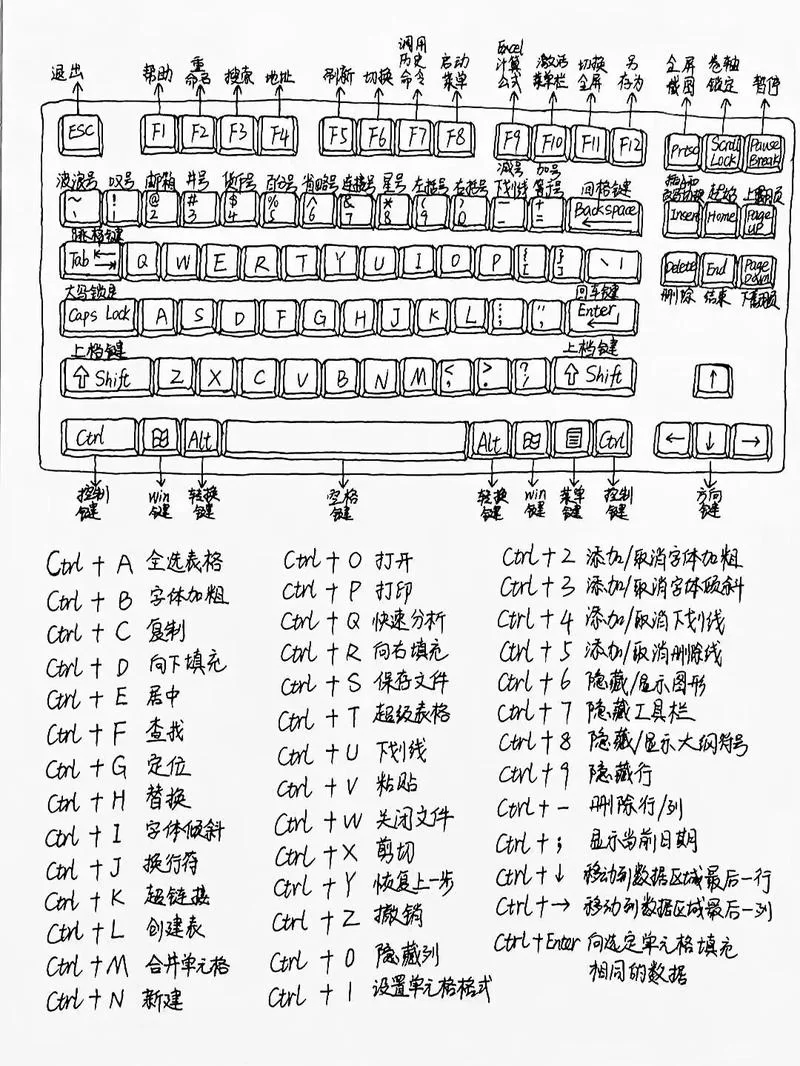 退出 帮助 重命名 搜索 地址 刷新 切换 调用历史命令 启动菜单 Excel计算公式 激活菜单栏 切换全屏 另存为 全屏截图 卷轴锁定 暂停
ESC F1 F2 F3 F4 F5 F6 F7 F8 F9 F10 F11 F12 Prtsc Scroll Lock Pause Break
波浪号 叹号 邮箱 井号 货币号 百分号 省略号 连接号 星号 左括号 右括号 减号下划线 加号等号 回格键 起始 上翻页
~ ! @ # $ % ^ & * ( ) — +
、 1 2 3 4 5 6 7 8 9 0 - = Backspace Insert Home Page UP
跳格键
Tab Q W E R T Y U I O P { [ } ] \ | Delete End Page Down
大写锁定 回车键 删除 结束 下翻页
Caps Lock A S D F G H J K L : ; " , Enter
上档键 上档键
⇧ Shift Z X C V B N M < , > . ? / ⇧ Shift ↑
Ctrl Alt Alt Ctrl ← ↓ →
控制键 win键 转换键 空格键 转换键 win键 菜单键 控制键 方向键
Ctrl + A 全选表格
Ctrl + B 字体加粗
Ctrl + C 复制
Ctrl + D 向下填充
Ctrl + E 居中
Ctrl + F 查找
Ctrl + G 定位
Ctrl + H 替换
Ctrl + I 字体倾斜
Ctrl + J 换行符
Ctrl + K 超链接
Ctrl + L 创建表
Ctrl + M 合并单元格
Ctrl + N 新建
Ctrl + O 打开
Ctrl + P 打印
Ctrl + Q 快速分析
Ctrl + R 向右填充
Ctrl + S 保存文件
Ctrl + T 超级表格
Ctrl + U 下划线
Ctrl + V 粘贴
Ctrl + W 关闭文件
Ctrl + X 剪切
Ctrl + Y 恢复上一步
Ctrl + Z 撤销
Ctrl + 0 隐藏列
Ctrl + 1 设置单元格格式
Ctrl + 2 添加/取消字体加粗
Ctrl + 3 添加/取消字体倾斜
Ctrl + 4 添加/取消下划线
Ctrl + 5 添加/取消删除线
Ctrl + 6 隐藏/显示图形
Ctrl + 7 隐藏工具栏
Ctrl + 8 隐藏/显示大纲符号
Ctrl + 9 隐藏行
Ctrl + - 删除行/列
Ctrl + ; 显示当前日期
Ctrl + ↓ 移动到数据区域最后一行
Ctrl + → 移动到数据区域最后一列
Ctrl + Enter 向选定单元格填充
相同的数据